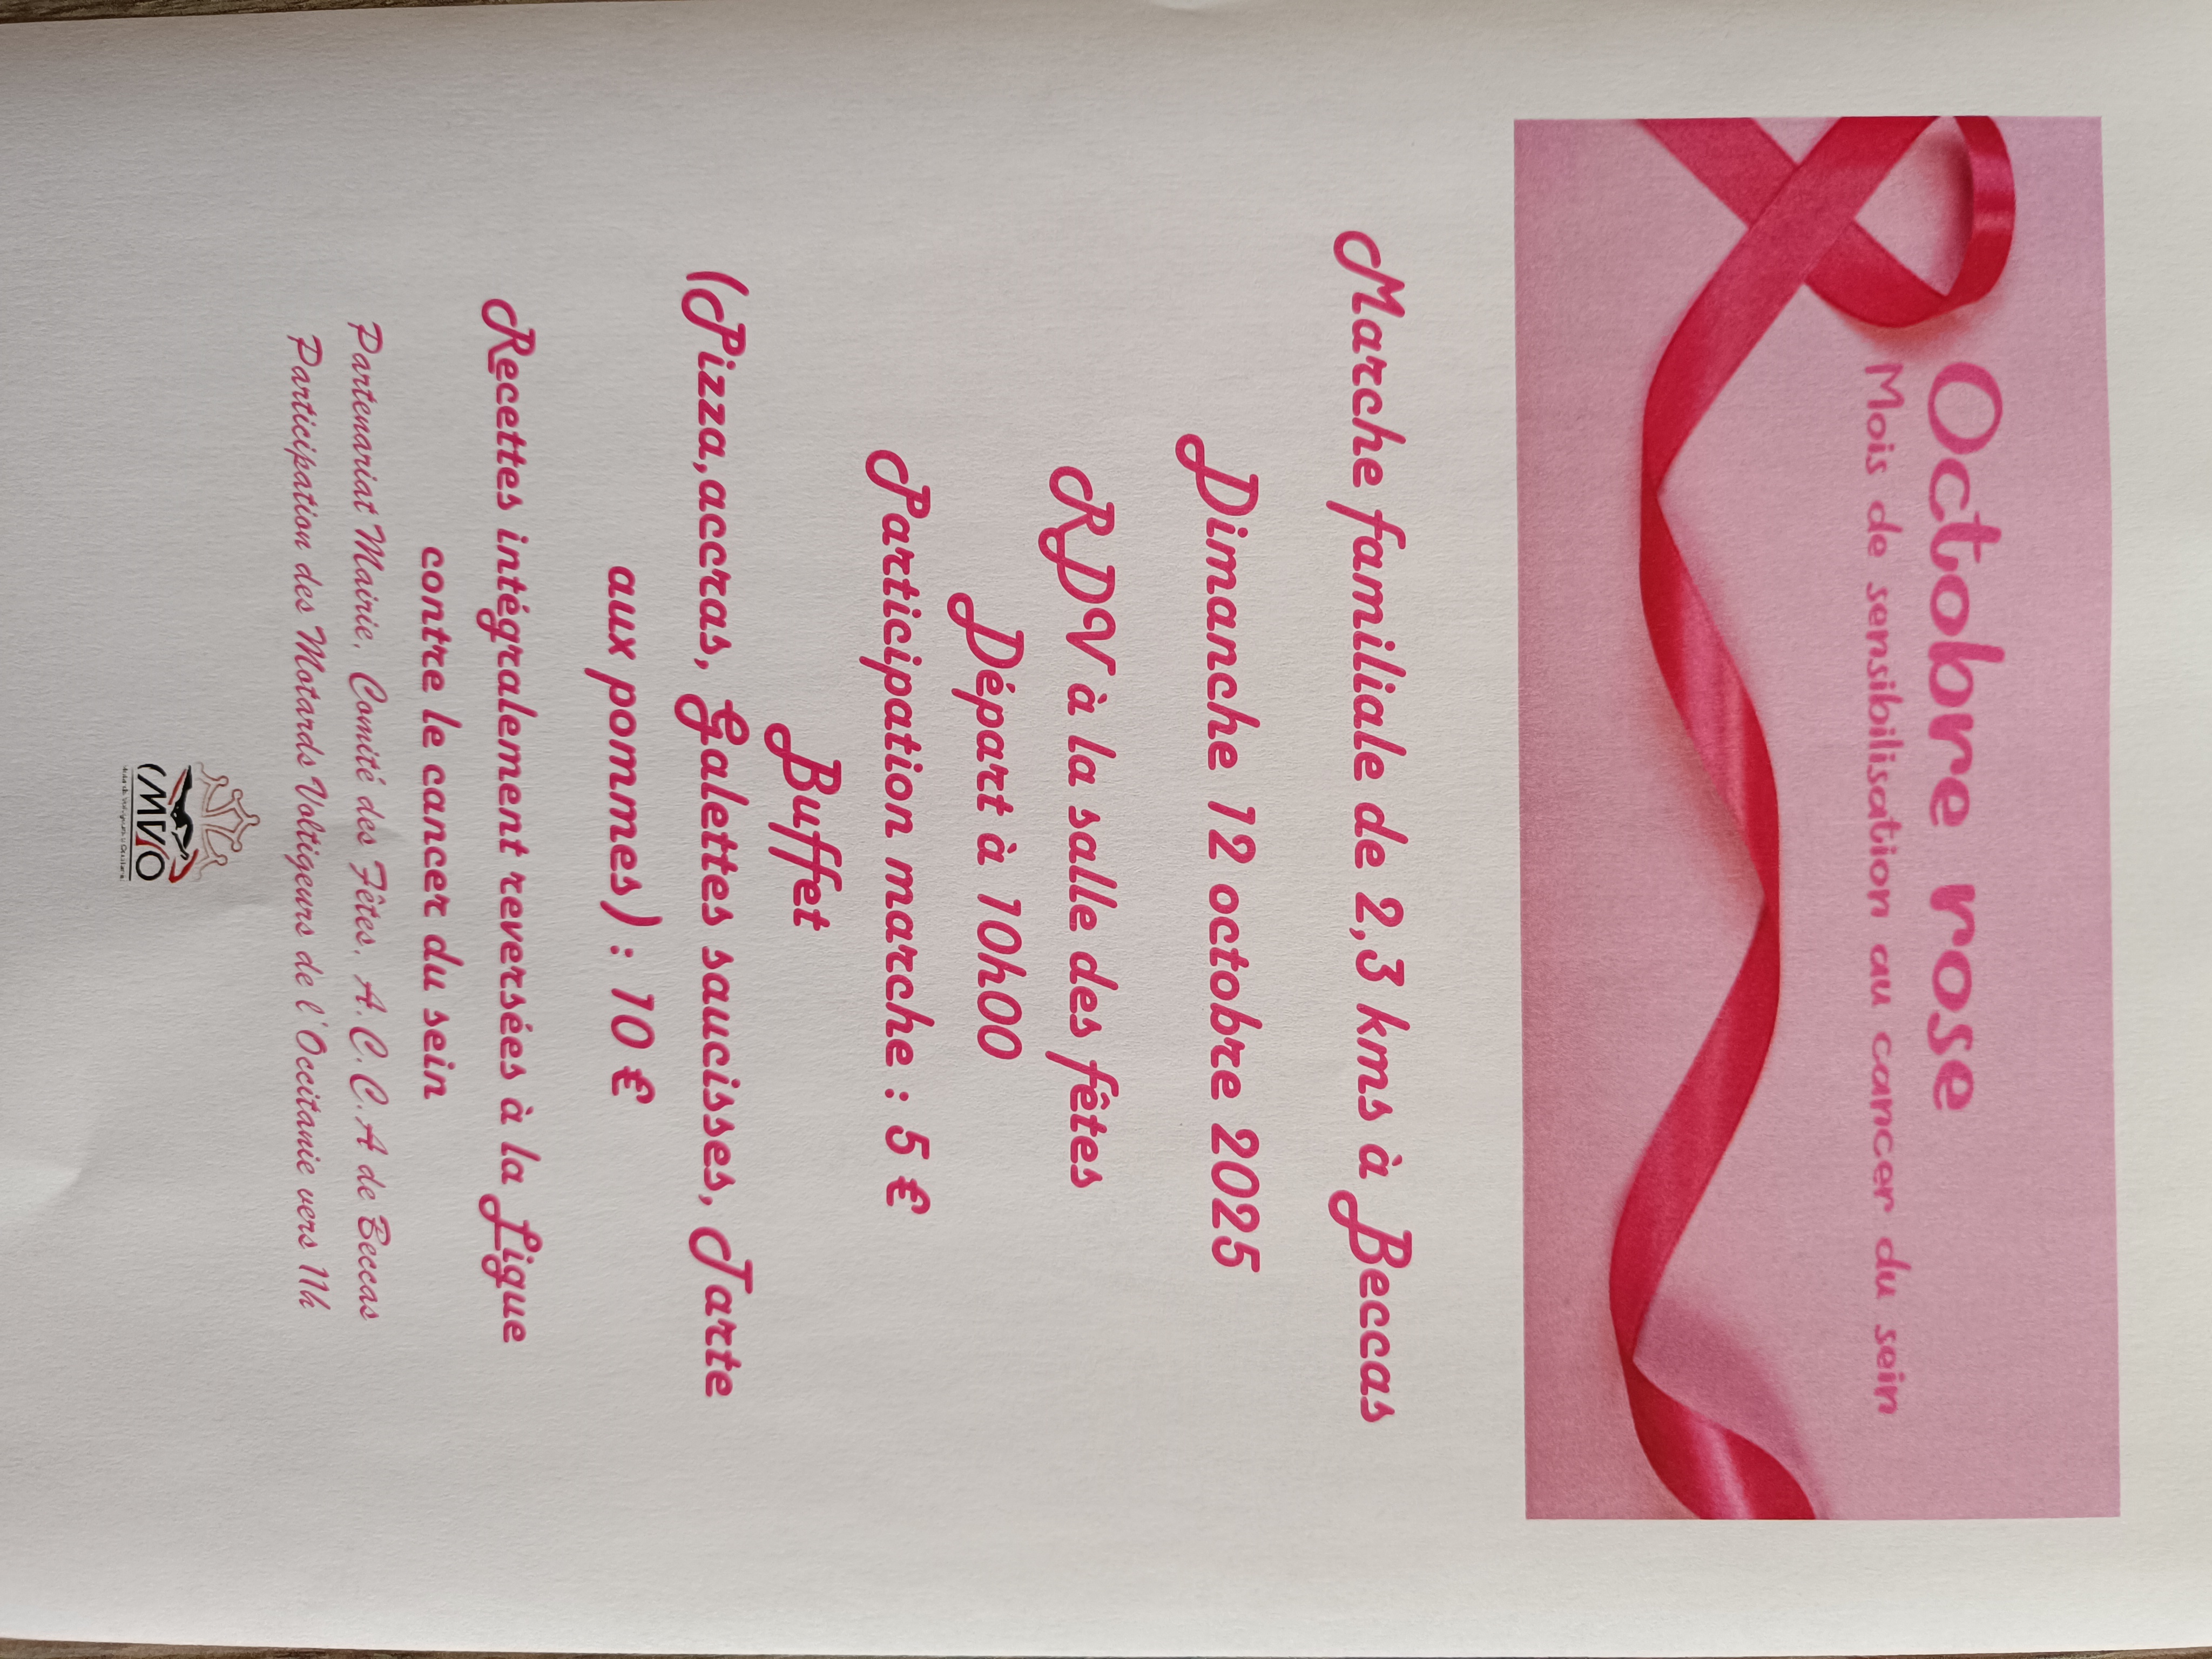 Octobre rose
Mois de sensibilisation au cancer du sein
Marche familiale de 2,3 kms à Beccas
Dimanche 12 octobre 2025
RDV à la salle des fêtes
Départ à 10h00
Participation marche : 5 €
Buffet
(Pizza,accras, Galettes saucisses, Tarte
aux pommes) : 10 €
Recettes intégralement reversées à la Ligue
contre le cancer du sein
Partenariat Mairie, Comité des Fêtes, A.C.C.A de Beccas
Participation des Motards Voltigeurs de l'Occitanie vers 11h